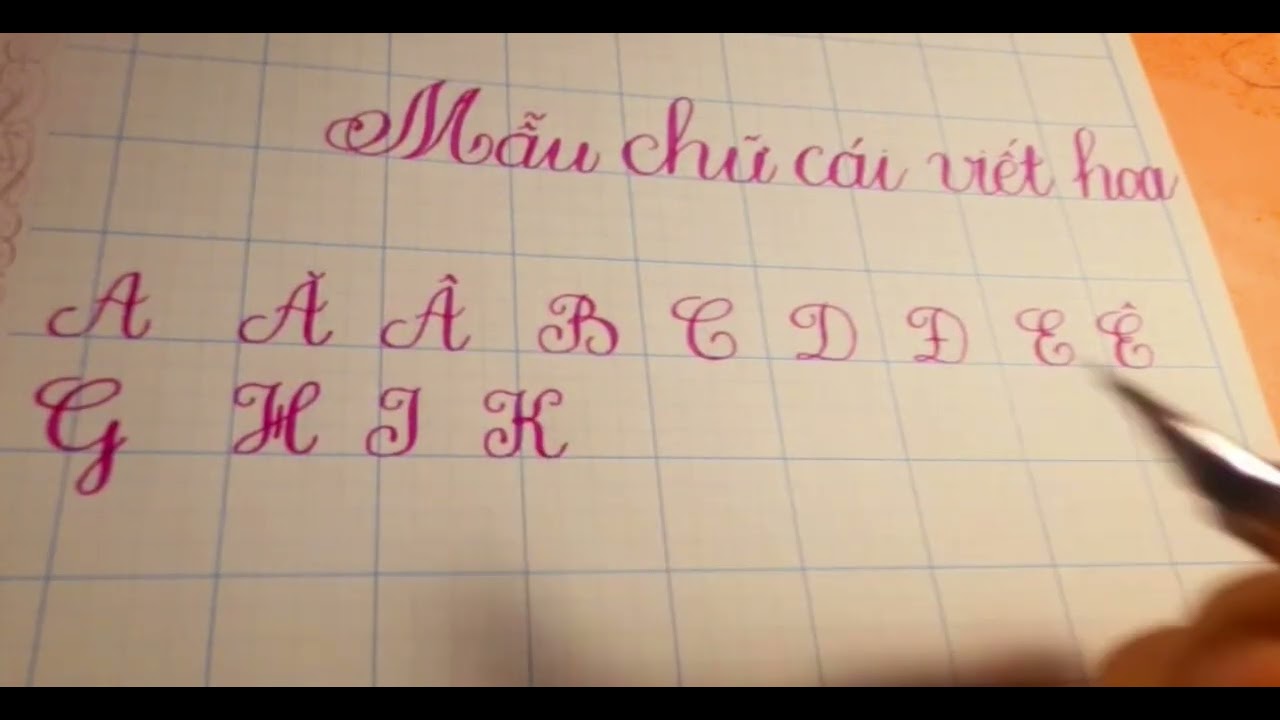 Mẫu chữ cái viết hoa
A Ă Â B C D Đ E Ê
G H I K